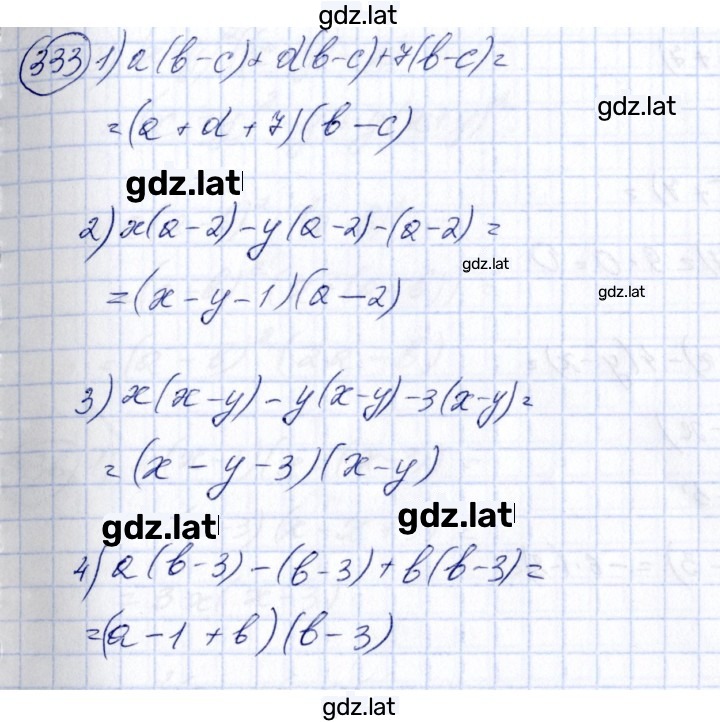 gdz.lat
333 1) a(b-c)+d(b-c)+7(b-c)=
gdz.lat
=(a+d+7)(b-c)
gdz.lat
2) x(a-2)-y(a-2)-(a-2)=
gdz.lat
=(x-y-1)(a-2)
gdz.lat
3) x(x-y)-y(x-y)-3(x-y)=
=(x-y-3)(x-y)
gdz.lat
gdz.lat
4) a(b-3)-(b-3)+b(b-3)=
=(a-1+b)(b-3)
gdz.lat